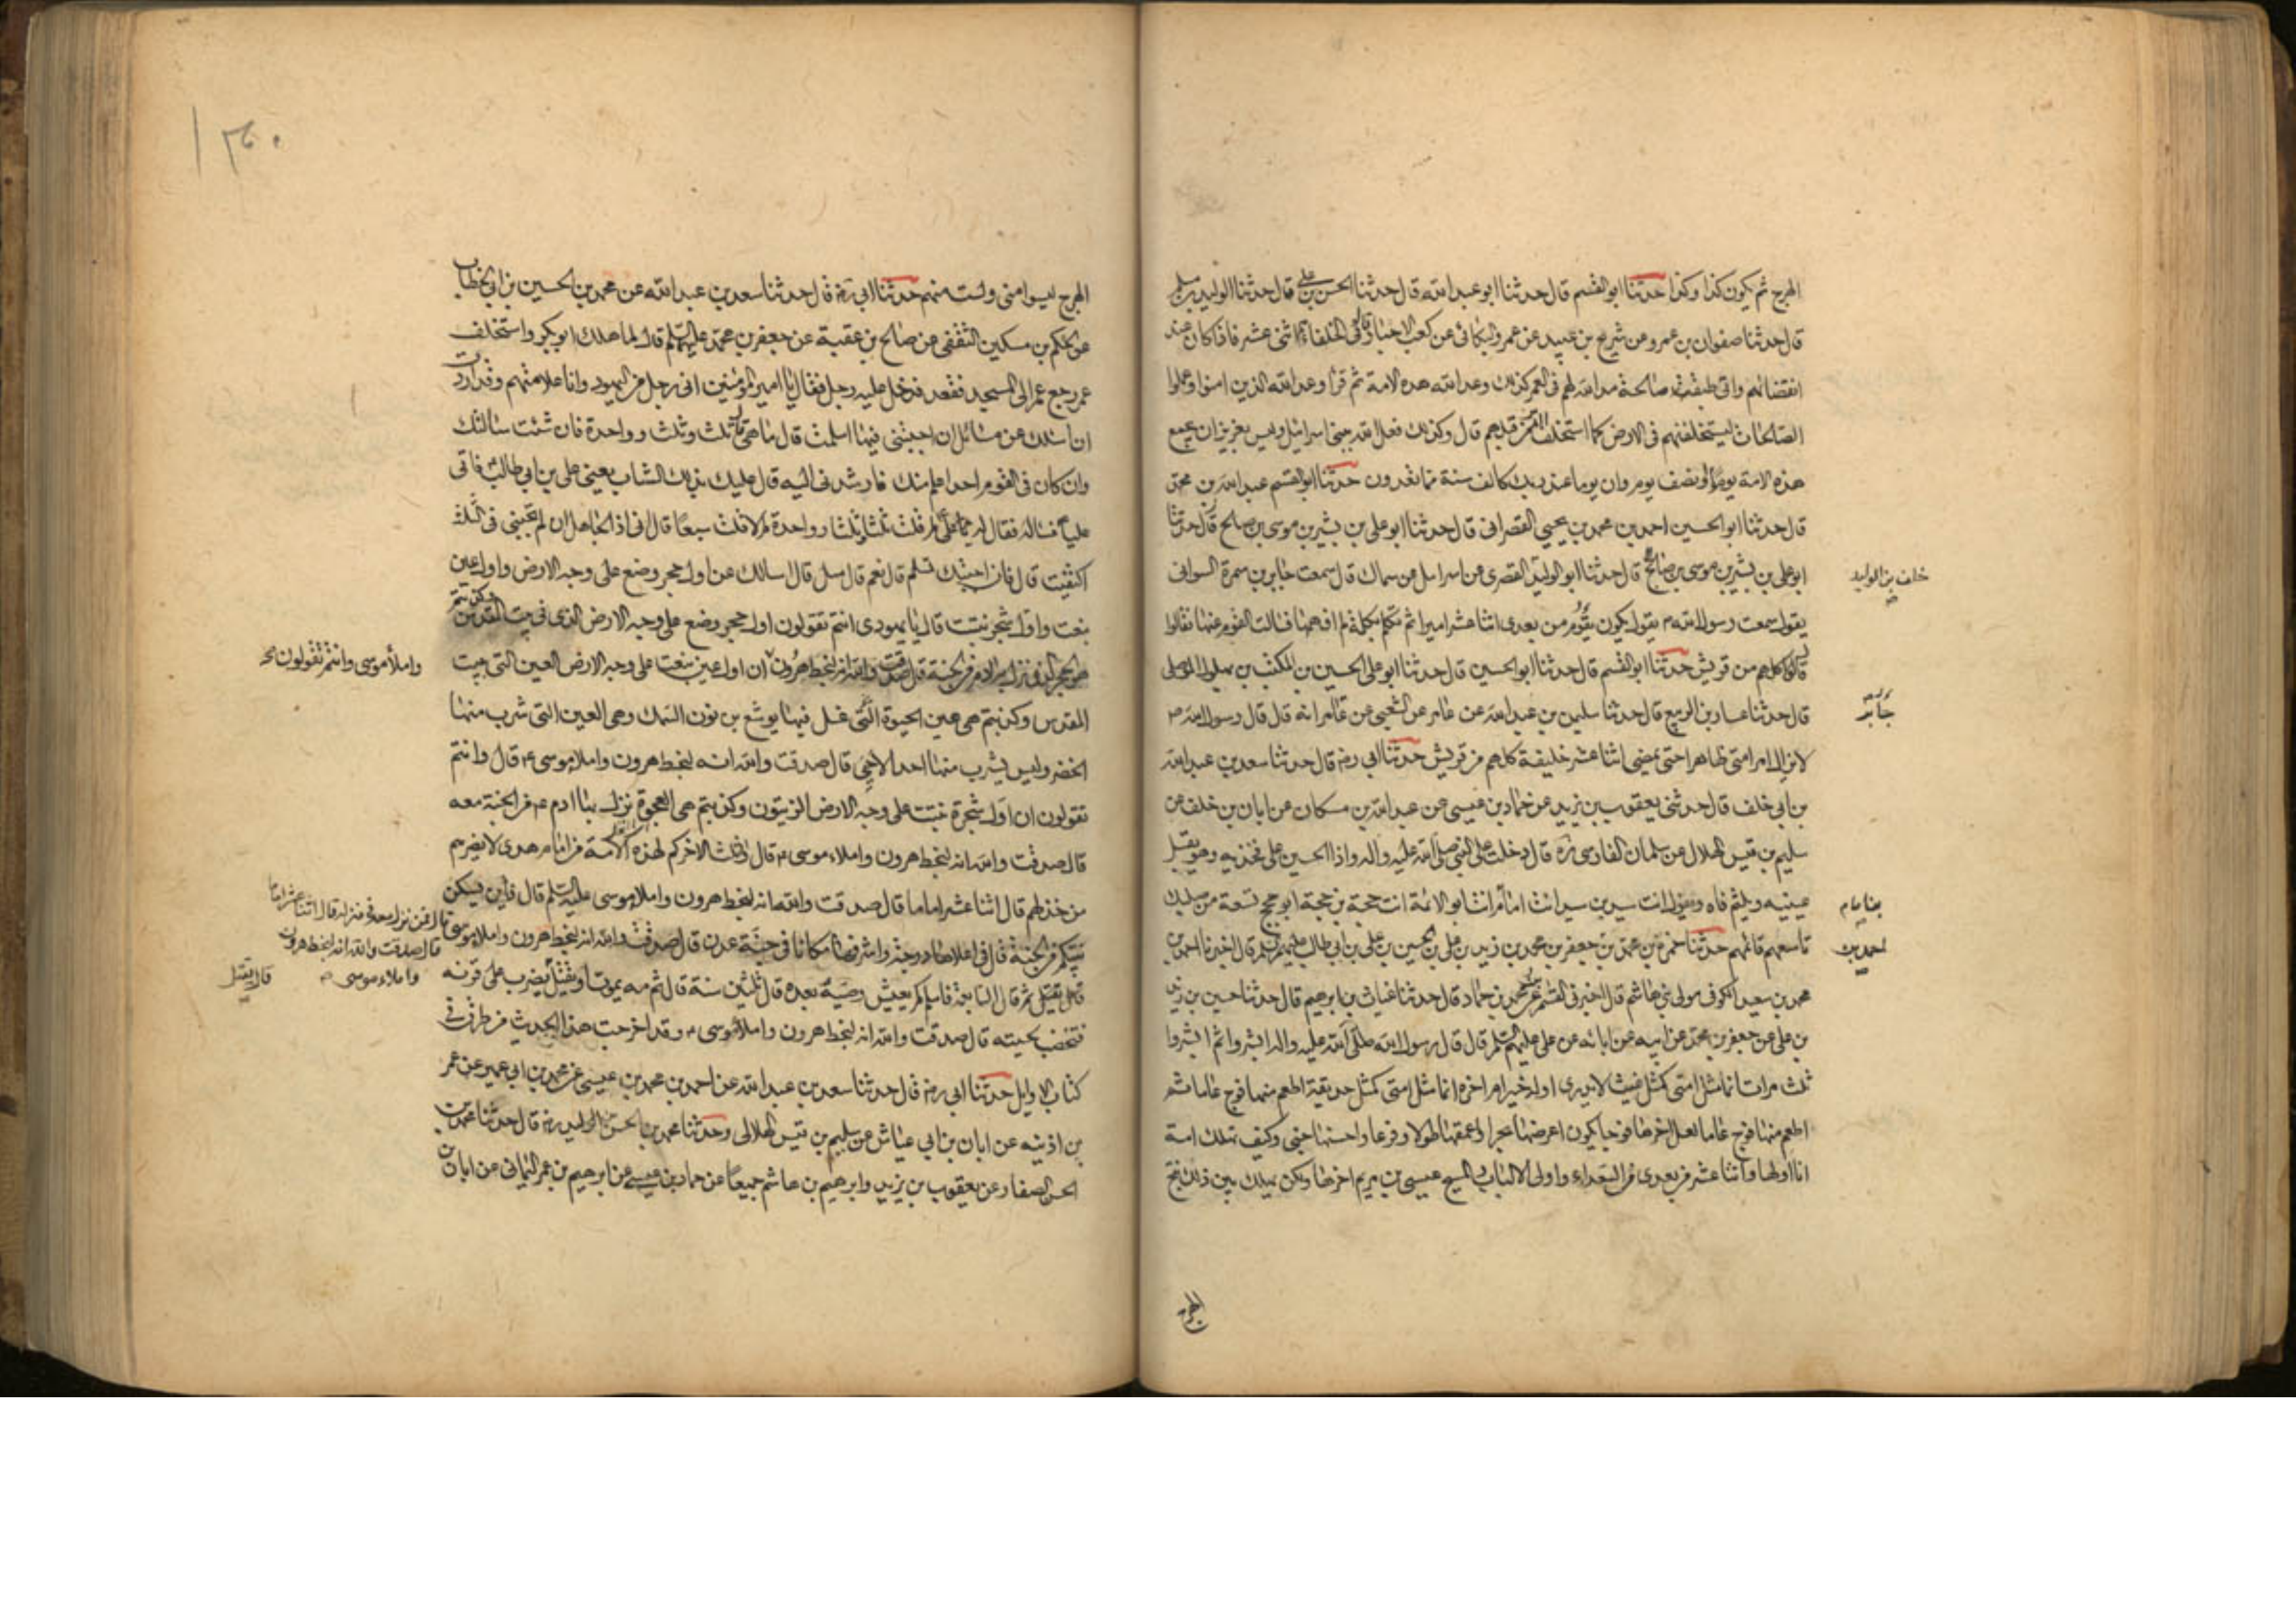 الهرج ثم يكون كذا وكذا حدثنا ابو القسم قال حدثنا ابو عبد الله قال حدثنا الحسن بن علي قال حدثنا الوليد بن مسلم
قال حدثنا صفوان بن عمرو عن شريح بن عبيد عن عمرو البكائى عن كعب الاحبار قال فى الخلفاء هم اثنى عشر فاذا كان عند
انقضائهم واتى طبقة صالحة مد الله لهم فى العمر كذلك وعد الله هذه الامة ثم قرأ وعد الله الذين امنوا وعملوا
الصالحات ليستخلفنهم فى الارض كما استخلف الذين من قبلهم قال وكذلك فعل الله ببنى اسرائيل وليس بعزيز ان يجمع
هذه الامة يوما او نصف يوم وان يوما عند ربك كالف سنة مما تعدون حدثنا ابو القسم عبد الله بن محمد
قال حدثنا ابو الحسين احمد بن محمد بن يحيى القصرانى قال حدثنا ابو على بن بشير بن موسى بن صالح قال حدثنا
ابو على بن بشير بن موسى بن صالح قال حدثنا ابو الوليد القصرى عن اسرايل عن سماك قال سمعت جابر بن سمرة السوائى
خلف بن الوليد
يقول سمعت رسول الله ص يقول يكون يقوم من بعدى اثنا عشر اميرا ثم تكلم بكلمة لم افهمها فسالت القوم عنها فقالوا
قال كلهم من قريش حدثنا ابو القسم قال حدثنا ابو الحسين قال حدثنا ابو على الحسين بن الكميت بن بهلول الموصلى
قال حدثنا غسان بن الربيع قال حدثنا سليمن بن عبد الله عن عامر عن الشعبى عن عامر انه قال قال رسول الله ص
جابر
لا يزال امر امتى ظاهرا حتى يمضى اثنا عشر خليفة كلهم من قريش حدثنا ابى رض قال حدثنا سعد بن عبد الله
بن ابى خلف قال حدثنى يعقوب بن يزيد عن حماد بن عيسى عن عبد الله بن مسكان عن ابان بن خلف عن
سليم بن قيس الهلالى عن سلمان الفارسى ره قال دخلت على النبى صلى الله عليه واله واذا الحسين على فخذيه وهو يقبل
عينيه ويلثم فاه ويقول انت سيد بن سيد انت امام بن امام انت ابو الائمة انت حجة بن حجة ابو حجج تسعة من صلبك
بن امام
تاسعهم قائمهم حدثنا حمزة بن محمد بن جعفر بن محمد بن زيد بن على بن الحسين بن على بن ابى طالب عليهم السلم قال اخبرنا احمد بن
احمد بن
محمد بن سعيد الكوفى مولى بنى هاشم قال اخبرنى القسم بن محمد بن حماد قال حدثنا غياث بن ابرهيم قال حدثنا حسين بن زيد
بن على عن جعفر بن محمد عن ابيه عن ابائه عن على عليهم السلم قال قال رسول الله صلى الله عليه واله ابشروا ثم ابشروا
ثلث مرات انما مثل امتى كمثل غيث لا يدرى اوله خير ام اخره انما مثل امتى كمثل حديقة اطعم منها فوج عاما ثم
اطعم منها فوج عاما لعل اخرها فوجا يكون اعرضها بحرا واعمقها طولا وفرعا واحسنها جنى وكيف تهلك امة
انا اولها واثنا عشر من بعدى من السعداء واولى الالباب والمسيح عيسى بن مريم اخرها ولكن يهلك بين ذلك نتج
الهرج
الهرج ليسوا منى ولست منهم حدثنا ابى رض قال حدثنا سعد بن عبد الله عن محمد بن الحسين بن ابى الخطاب
عن الحكم بن مسكين الثقفى عن صالح بن عقبة عن جعفر بن محمد عليهما السلم قال لما هلك ابو بكر واستخلف
عمر رجع عمر الى المسجد فقعد فدخل عليه رجل فقال يا امير المؤمنين انى رجل من اليهود وانا علامتهم وقد اردت
ان اسئلك عن مسائل ان اجبتنى فيها اسلمت قال ما هى قال ثلث وثلث وواحدة فان شئت سالتك
وان كان فى القوم احد اعلم منك فارشدنى اليه قال عليك بذلك الشاب يعنى على بن ابى طالب ع فاتى
عليا ع فساله فقال له على لم قلت ثلثا وثلثا وواحدة الا قلت سبعا قال انى اذا لجاهل ان لم تجبنى فى الثلث
اكتفيت قال فان اجبتك تسلم قال نعم قال سل قال اسالك عن اول حجر وضع على وجه الارض واول عين
نبعت واول شجر نبتت قال يا يهودى انتم تقولون اول حجر وضع على وجه الارض الذى فى بيت المقدس وكذبتم
هو الحجر الذى نزل به ادم من الجنة قال صدقت والله انه لبخط هرون ان اول عين نبعت على وجه الارض العين التى ببيت
واملاء موسى وانتم تقولون صح
المقدس وكذبتم هى عين الحيوة التى غسل فيها يوشع بن نون السمك وهى العين التى شرب منها
الخضر وليس يشرب منها احد الا حيى قال صدقت والله انه لبخط هرون واملاء موسى ع قال وانتم
تقولون ان اول شجرة نبتت على وجه الارض الزيتون وكذبتم هى العجوة نزل بها ادم ع من الجنة معه
قال صدقت والله انه لبخط هرون واملاء موسى ع قال والثلث الاخر كم لهذه الامة من امام هدى لا يضرهم
من خذلهم قال اثنا عشر اماما قال صدقت والله انه لبخط هرون واملاء موسى عليه السلم قال فاين يسكن
نبيكم من الجنة قال فى اعلاها درجة واشرفها مكانا فى جنة عدن قال صدقت والله انه لبخط هرون واملاء موسى
قال فمن ينزل معه فى منزله قال اثنا عشر اماما
قال صدقت والله انه لبخط هرون
واملاء موسى ع
ثم قال السابعة فاسلم كم يعيش وصيه بعده قال ثلثين سنة قال ثم مه يموت او يقتل يضرب على قرنه
قال يقتل
فتخضب لحيته قال صدقت والله انه لبخط هرون واملاء موسى ع وقد اخرجت هذا الحديث من طرق فى
كتاب الاوايل حدثنا ابى رض قال حدثنا سعد بن عبد الله عن احمد بن محمد بن عيسى عن محمد بن ابى عمير عن عمر
بن اذينه عن ابان بن ابى عياش عن سليم بن قيس الهلالى وحدثنا محمد بن الحسن بن الوليد رض قال حدثنا محمد بن
الحسن الصفار عن يعقوب بن يزيد وابرهيم بن هاشم جميعا عن حماد بن عيسى عن ابرهيم بن عمر اليمانى عن ابان بن